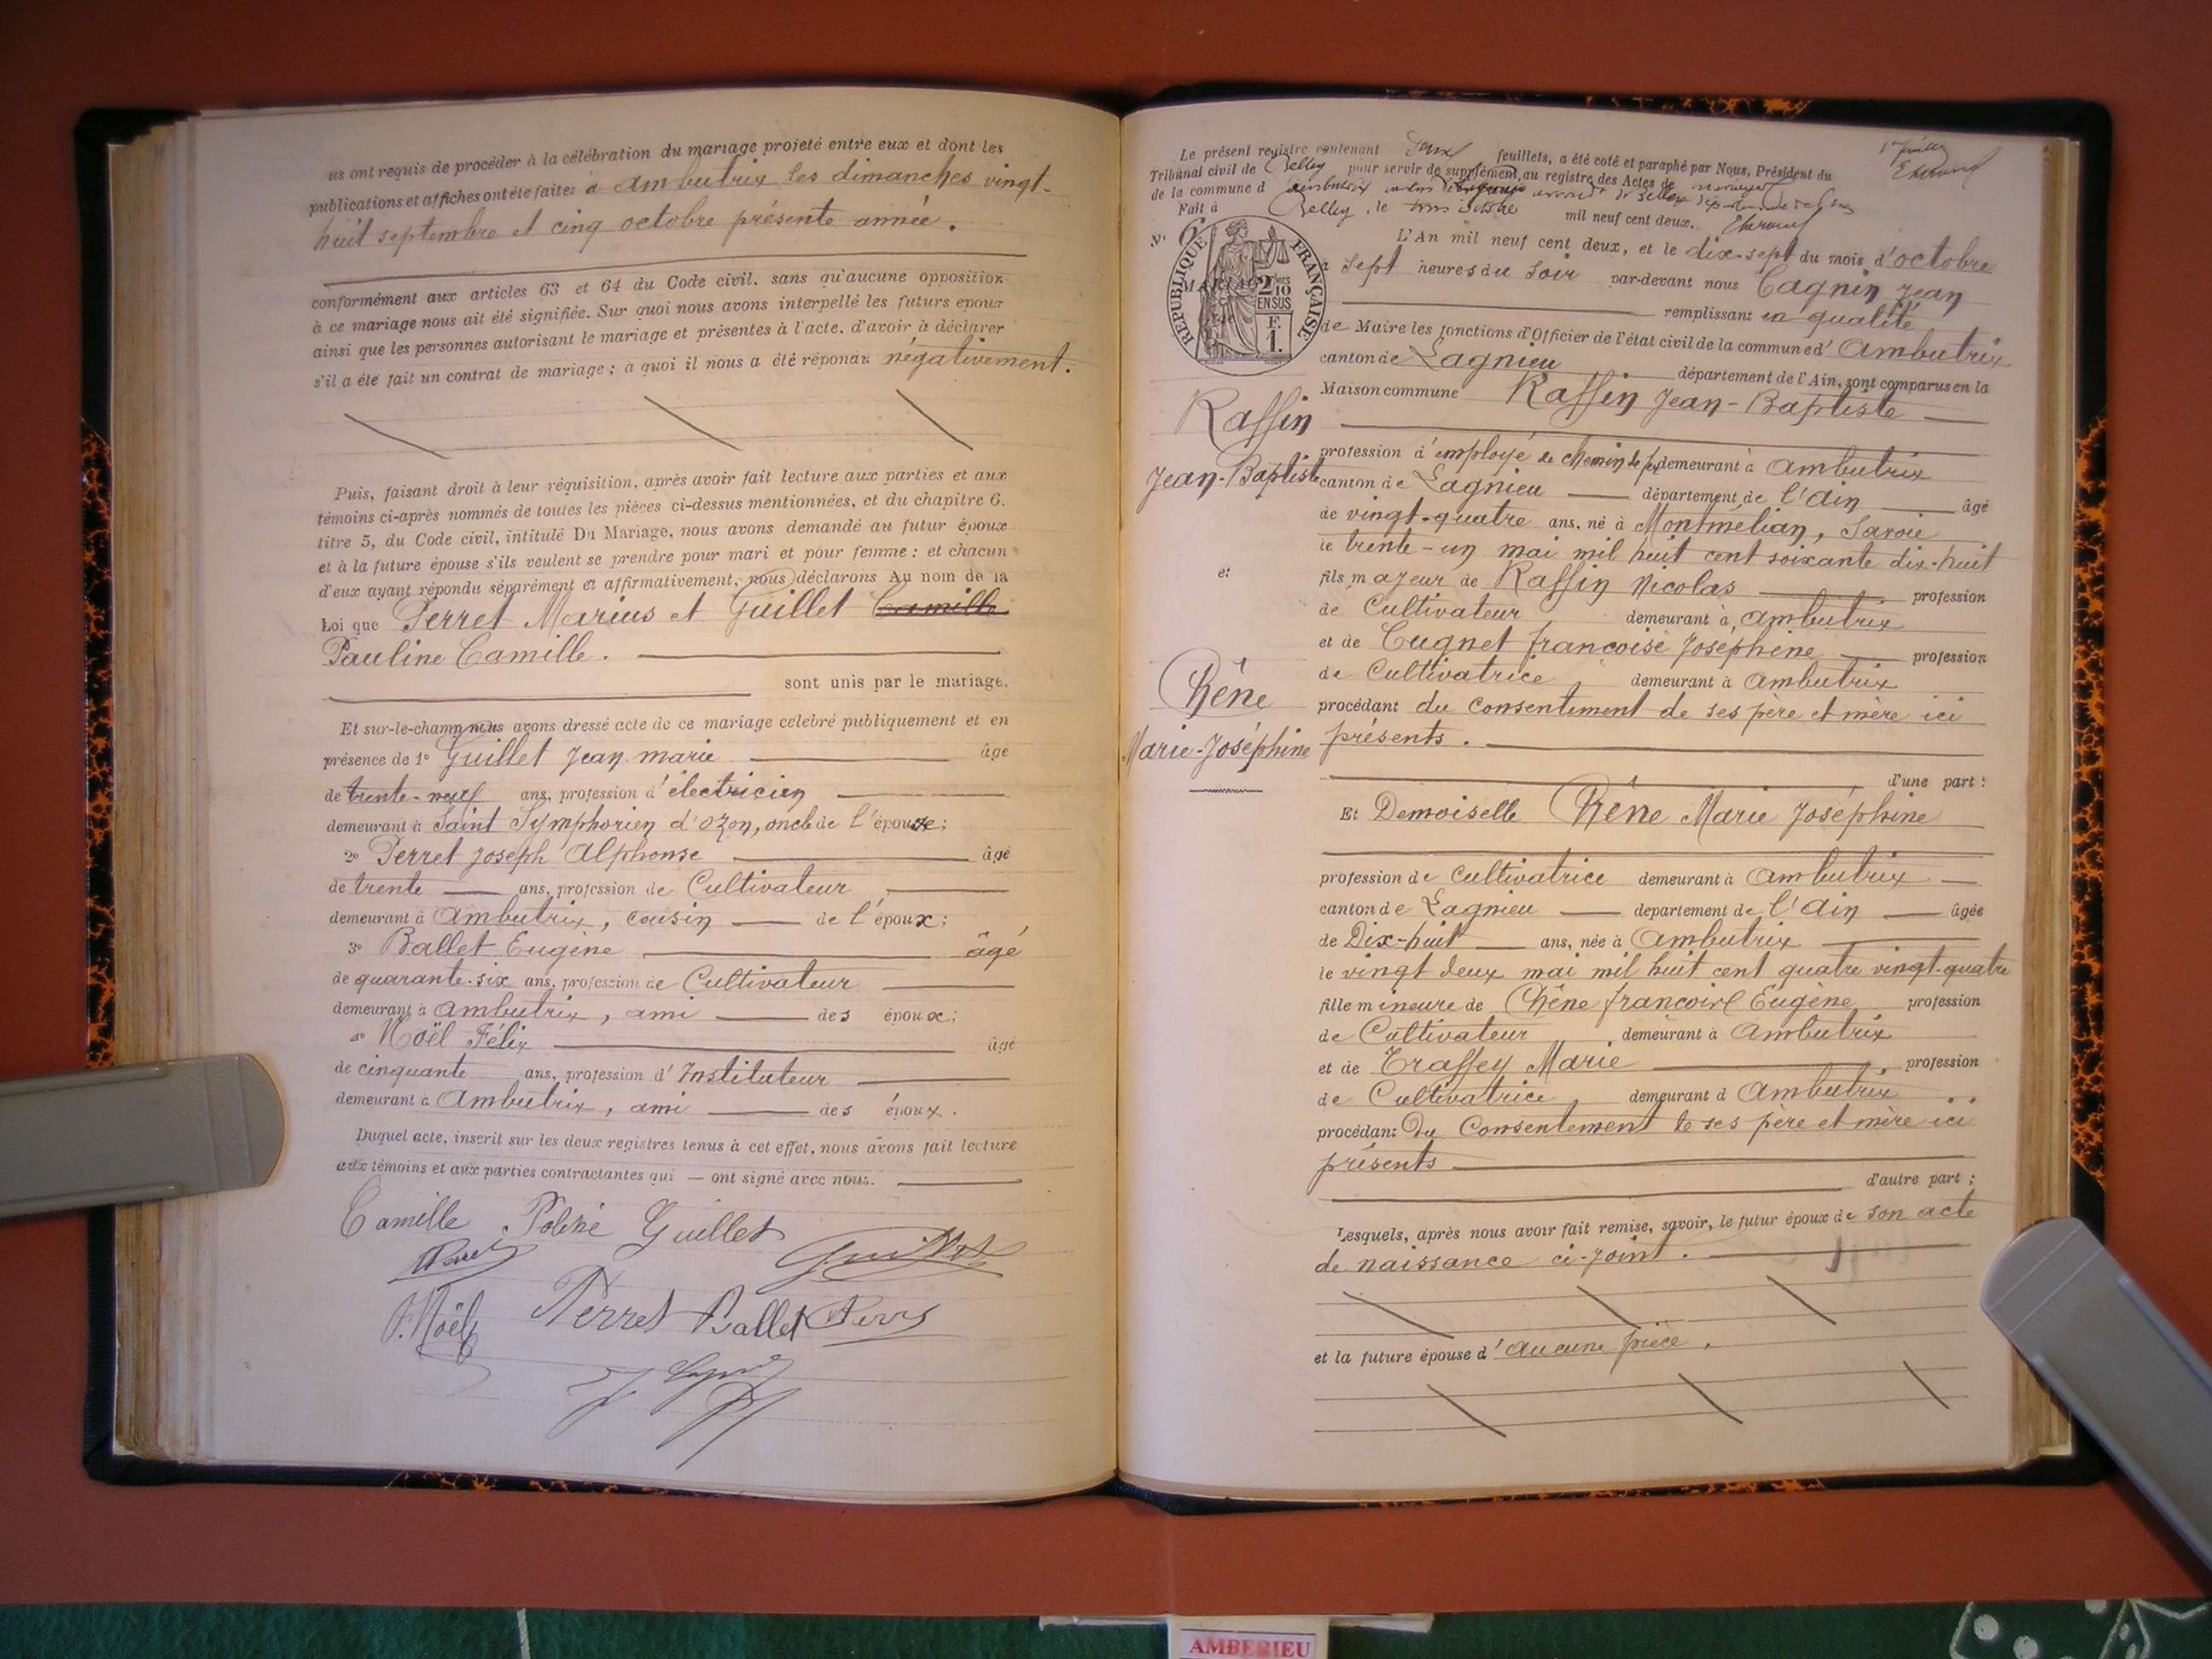 us ont requis de procéder à la célébration du mariage projeté entre eux et dont les
publications et affiches ont été faites à Ambutrix les dimanches vingt-
huit septembre et cinq octobre présente année.
conformément aux articles 63 et 64 du Code civil, sans qu'aucune opposition
à ce mariage nous ait été signifiée. Sur quoi nous avons interpellé les futurs époux
ainsi que les personnes autorisant le mariage et présentes à l'acte, d'avoir à déclarer
s'il a été fait un contrat de mariage; à quoi il nous a été répondu négativement.
Puis, faisant droit à leur réquisition, après avoir fait lecture aux parties et aux
témoins ci-après nommés de toutes les pièces ci-dessus mentionnées, et du chapitre 6.
titre 5, du Code civil, intitulé Du Mariage, nous avons demandé au futur époux
et à la future épouse s'ils veulent se prendre pour mari et pour femme: et chacun
d'eux ayant répondu séparément et affirmativement, nous déclarons Au nom de la
Loi que Perret Marius et Guillet Camille
Pauline Camille.
sont unis par le mariage.
Et sur-le-champ nous avons dressé acte de ce mariage célébré publiquement et en
présence de 1° Guillet Jean-marie âgé
de trente-neuf ans, profession d'électricien
demeurant à Saint Symphorien d'ozon, oncle de l'épouse;
2° Perret Joseph Alphonse âgé
de trente ans, profession de Cultivateur
demeurant à Ambutrix, cousin de l'époux;
3° Ballet Eugène âgé
de quarante-six ans, profession de Cultivateur
demeurant à Ambutrix, ami des époux;
4° Noël Félix âgé
de cinquante ans, profession d'Instituteur
demeurant à Ambutrix, ami des époux.
Duquel acte, inscrit sur les deux registres tenus à cet effet, nous avons fait lecture
aux témoins et aux parties contractantes qui — ont signé avec nous.
Camille Poline Guillet
Guillet
F. Noël Perret Ballet
Le présent registre contenant deux feuillets, a été coté et paraphé par Nous, Président du
Tribunal civil de Belley pour servir de supplément, au registre des Actes de mariage
de la commune d'Ambutrix
Fait à Belley, le trois octobre mil neuf cent deux.
N° 6
REPUBLIQUE FRANÇAISE
2/10 MES
EN SUS
F.
1.
L'An mil neuf cent deux, et le dix-sept du mois d'octobre
sept heures du soir par-devant nous Cagnin Jean
remplissant en qualité
de Maire les fonctions d'Officier de l'état civil de la commune d'Ambutrix
canton de Lagnieu département de l'Ain, sont comparus en la
Maison commune Raffin Jean-Baptiste
Raffin
Jean-Baptiste
et
Chêne
Marie-Joséphine
profession d'employé de chemin de fer demeurant à Ambutrix
canton de Lagnieu département de l'Ain âgé
de vingt-quatre ans, né à Montmélian, Savoie
le trente-un mai mil huit cent soixante dix-huit
fils majeur de Raffin Nicolas profession
de Cultivateur demeurant à Ambutrix
et de Cugnet françoise Joséphine profession
de Cultivatrice demeurant à Ambutrix
procédant du consentement de ses père et mère ici
présents.
d'une part:
Et Demoiselle Chêne Marie Joséphine
profession de Cultivatrice demeurant à Ambutrix
canton de Lagnieu département de l'Ain âgée
de Dix-huit ans, née à Ambutrix
le vingt deux mai mil huit cent quatre vingt-quatre
fille mineure de Chêne françois Eugène profession
de Cultivateur demeurant à Ambutrix
et de Traffey Marie profession
de Cultivatrice, demeurant à Ambutrix
procédant Du Consentement de ses père et mère ici
présents
d'autre part;
Lesquels, après nous avoir fait remise, savoir, le futur époux de son acte
de naissance ci-joint.
et la future épouse d'aucune pièce.
AMBERIEU